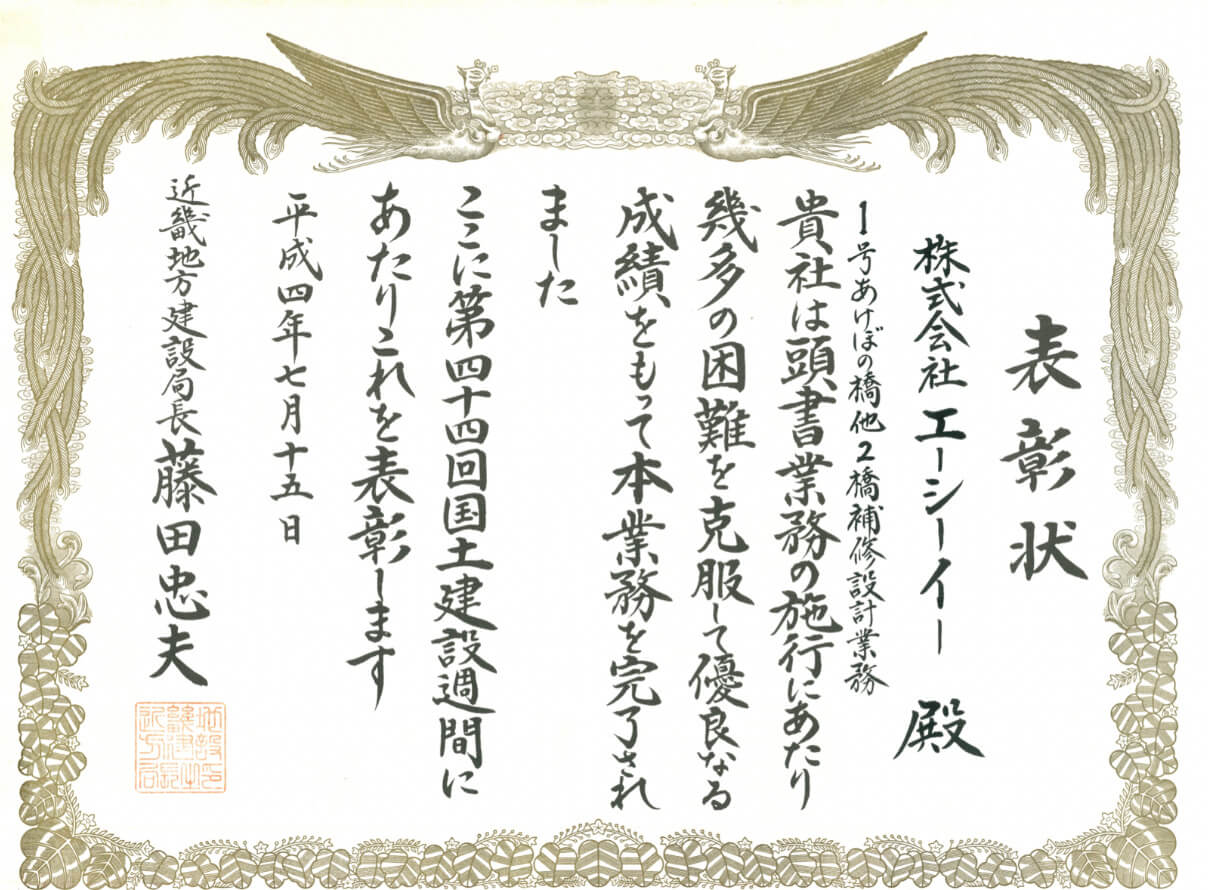 表彰状
株式会社 エーシーイー 殿
1号あけぼの橋他2橋補修設計業務
貴社は頭書業務の施行にあたり
幾多の困難を克服して優良なる
成績をもって本業務を完了され
ました
ここに第四十四回国土建設週間に
あたりこれを表彰します
平成四年七月十五日
近畿地方建設局長 藤田忠夫